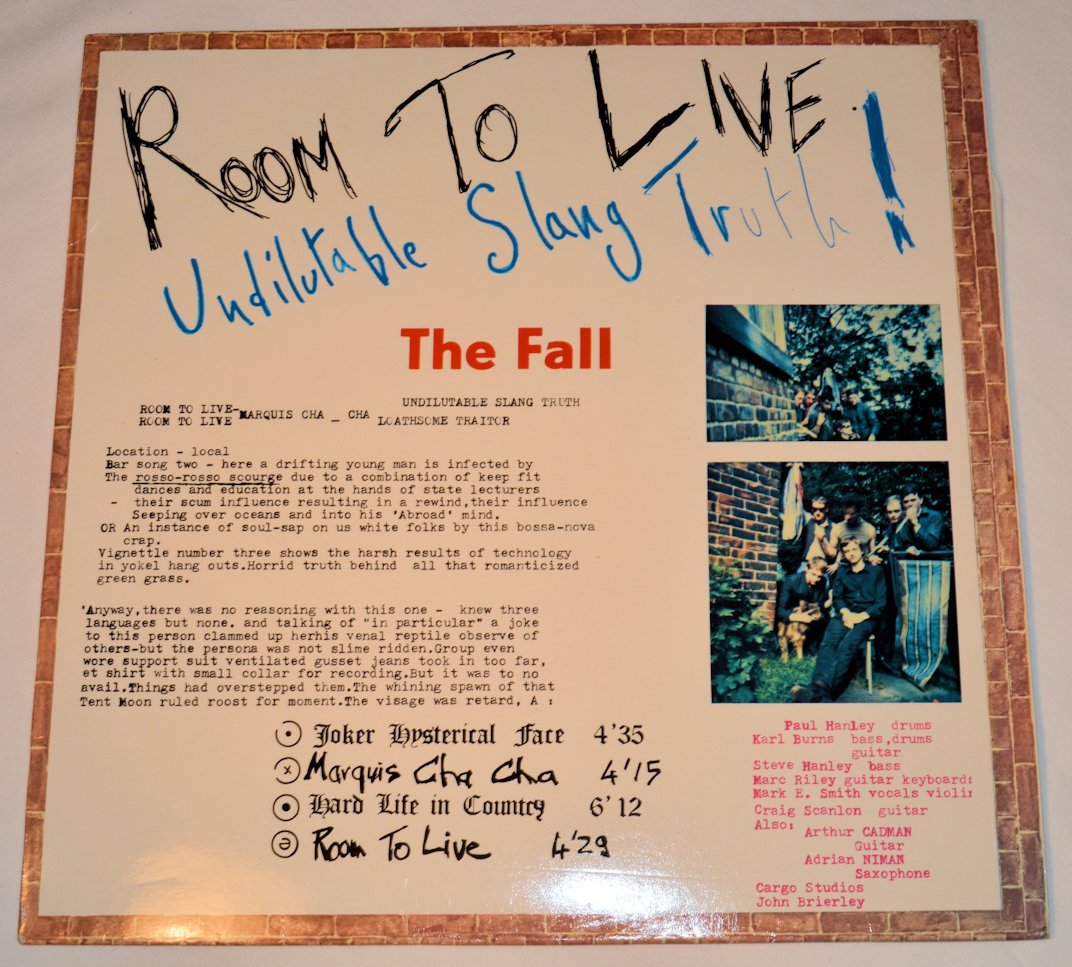 ROOM TO LIVE
Undilutable Slang Truth!
The Fall
UNDILUTABLE SLANG TRUTH
ROOM TO LIVE-MARQUIS CHA _ CHA
ROOM TO LIVE LOATHSOME TRAITOR
Location - local
Bar song two - here a drifting young man is infected by
The rosso-rosso scourge due to a combination of keep fit
dances and education at the hands of state lecturers
- their scum influence resulting in a rewind,their influence
Seeping over oceans and into his 'Abroad' mind.
OR An instance of soul-sap on us white folks by this bossa-nova
crap.
Vignettle number three shows the harsh results of technology
in yokel hang outs.Horrid truth behind all that romanticized
green grass.
'Anyway,there was no reasoning with this one - knew three
languages but none. and talking of "in particular" a joke
to this person clammed up herhis venal reptile observe of
others-but the persona was not slime ridden.Group even
wore support suit ventilated gusset jeans took in too far,
et shirt with small collar for recording.But it was to no
avail.Things had overstepped them.The whining spawn of that
Tent Moon ruled roost for moment.The visage was retard, A :
Joker Hysterical Face 4'35
x Marquis Cha Cha 4'15
Hard Life in Country 6'12
ə Room To Live 4'29
Paul Hanley drums
Karl Burns bass,drums
guitar
Steve Hanley bass
Marc Riley guitar keyboards
Mark E. Smith vocals violin
Craig Scanlon guitar
Also:
Arthur CADMAN
Guitar
Adrian NIMAN
Saxophone
Cargo Studios
John Brierley